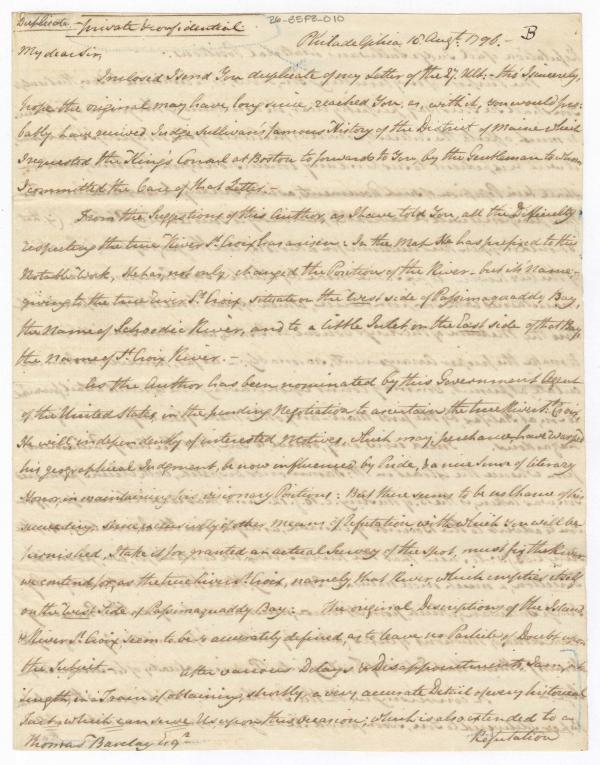 Duplicate
private & confidential
26-85F2-010
B
Philadelphia, 16 Augt. 1796.
My dear Sir,
Inclosed I send You duplicate of my Letter of the 27. Ult.- tho I sincerely,
hope the original may have, long since, reached You, as, with it, You would pro-
bably, have received Judge Sullivan's famous History of the District of Maine which
I requested the King's Consul at Boston to forward to You, by the Gentleman to whom
I committed the Care of that Letter.-
From the Suggestions of this Author, as I have told You, all the Difficulty
respecting the true River St. Croix has arisen: In the Map He has prefixed to this
Notable Work, He has, not only, changed the Position of the River - but it's Name -
giving to the true river St. Croix, situate on the West side of Passimaquaddy Bay,
the Name of Schoodic River, and to a little Inlet on the East side of that Bay,
the Name of St. Croix River.-
As the Author has been nominated by this Government Agent
of the United States, in the pending Negotiation to ascertain the true River St. Croix,
He will, independently of interested Motives, which may, perchance, have warped
his geographical Judgment, be now influenced by Pride, & a nice Sense of literary
Honor, in maintaining his visionary Positions: But there seems to be no Chance of his
succeeding. Since, exclusively of other Means of Refutation with which You will be
furnished, I take it for granted an actual Survey of the Spot, must fix the River
we contend for, as the true River St. Croix, namely, that River, which empties itself
on the West Side of Passimaquaddy Bay:- The original Descriptions of the Island
& River St. Croix seem to be so accurately defined, as to leave no Particle of Doubt upon
the Subject.
After various Delays & Disappointments, I am, at
length, in a Train of obtaining, shortly, a very accurate Detail of every historical
Fact, which can serve Us upon this occasion; which is also extended to a
Thomas Barclay Esqr.
Refutation